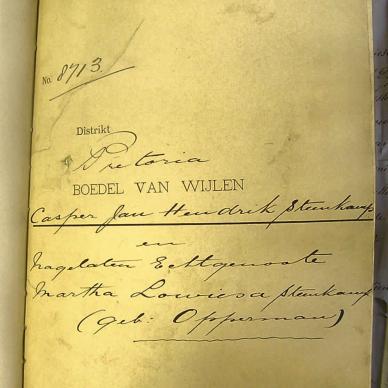 No. 8713.
Distrikt
Pretoria
BOEDEL VAN WIJLEN
Casper Jan Hendrik Steenkamp
en
nagelaten Echtgenoote
Martha Lowiesa Steenkamp
(geb: Opperman)